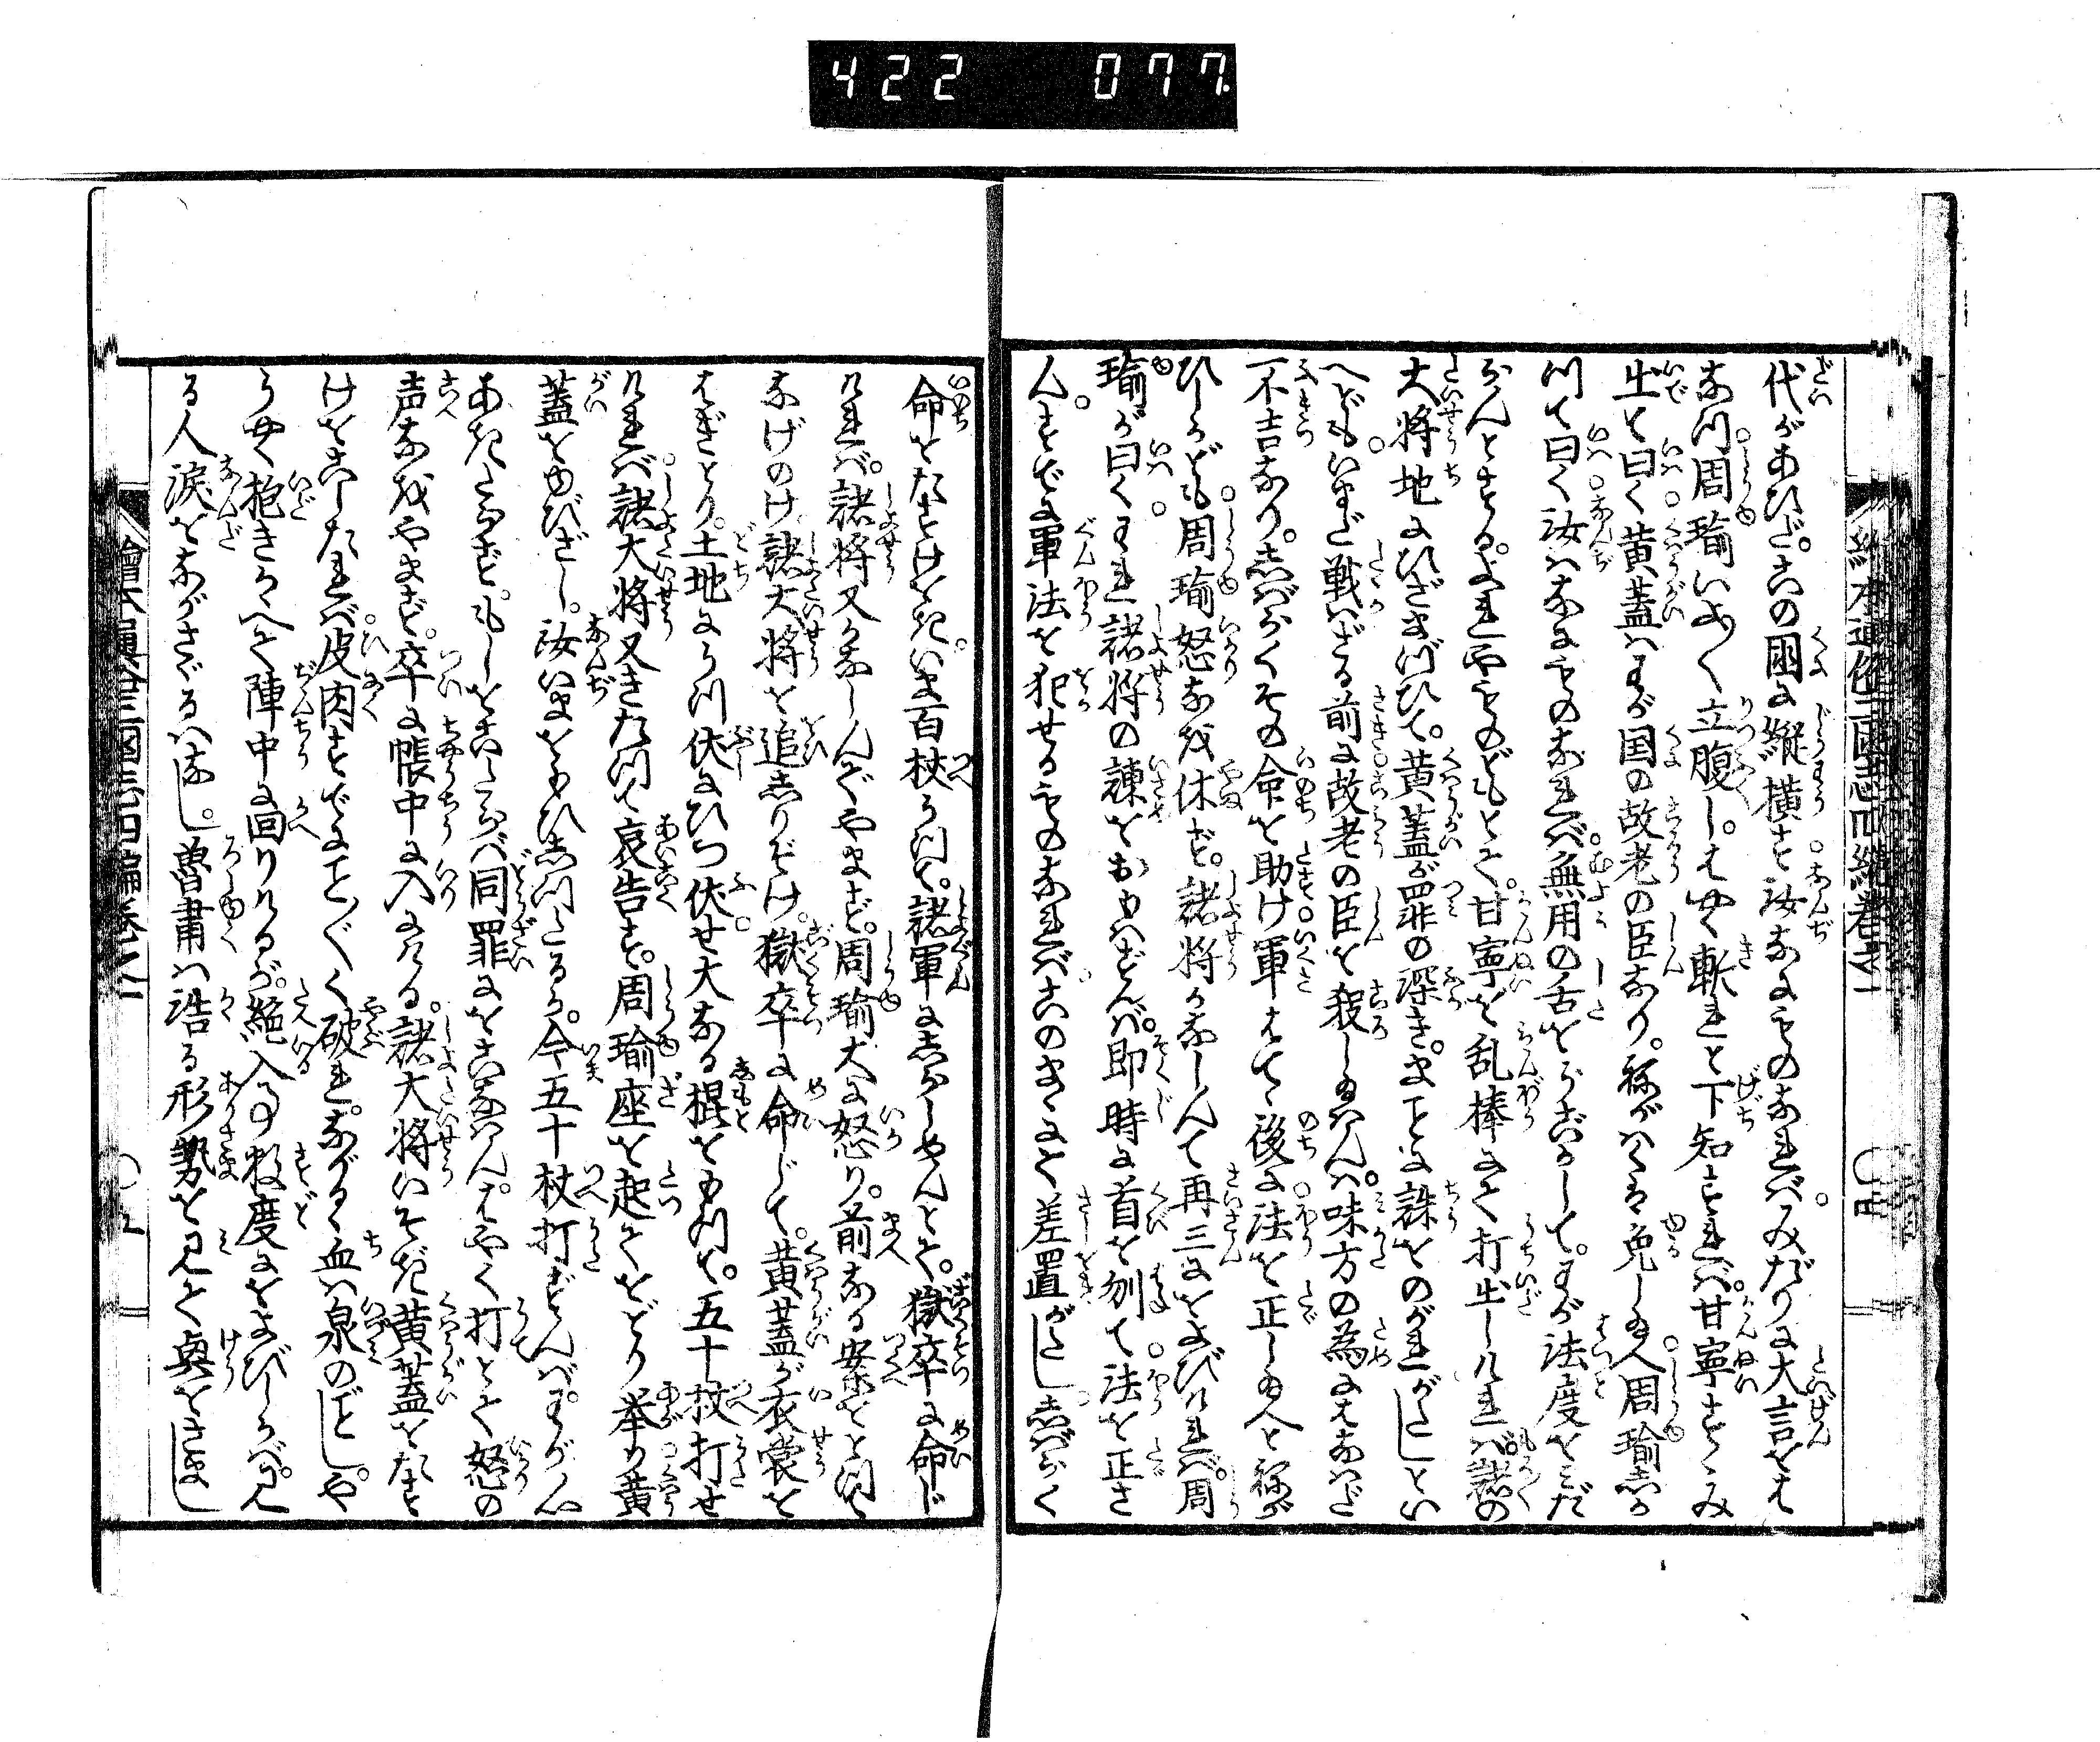 422 077.
代があひだ。この国に縦横す。汝なにものなれば。みだりに大言をは
なつ。周瑜いよ〳〵立腹し。はやく斬れと下知すれば。甘寧すゝみ
出て曰く。黄蓋はわが国の故老の臣なり。ねがはくは免し給へ。周瑜しか
つて曰く。汝はなにものなれば。無用の舌をうごかして。わが法度をみだ
さんとする。よれやものどもとて。甘寧を乱棒にて打出しければ。諸の
大将地にひざまづひて。黄蓋が罪の深き。まことに誅をのがれがたしとい
へども。いまだ戦はざる前に。故老の臣を殺し給はんは。味方の為にはなはだ
不吉なり。しばらくその命を助け。軍はてゝ後に。法を正し給へと。ねが
ひしかども。周瑜怒なを休ず。諸将かなしんで再三におよびければ。周
瑜が曰く。われ諸将の諌をおもはずんば。即時に首を刎て。法を正さ
ん。すでに軍法を犯せるものなれば。このまゝにて差置がたし。しばらく
命をたすけをき。いま百杖うつて。諸軍にしらしめんとて。獄卒に命じ
ければ。諸将又かなしんでやまず。周瑜大に怒り。前なる案をとつて
なげのけ。諸大将を追しりぞけ。獄卒に命じて。黄蓋が衣裳を
はぎとり。土地にうつ伏にひつ伏せ。大なる棍をもつて。五十杖打せ
ければ。諸大将又きたつて哀告す。周瑜座を起てをどり挙り。黄
蓋をゆびざし。汝いまをもひしつたるか。今五十杖打ずんば。わが心
あきたらず。もしをこたらば同罪にをこなはん。はやく打とて。怒の
声なをやまず。卒に帳中に入にける。諸大将いそぎ黄蓋をたす
けをこしたれば。皮肉すでにこと〴〵く破れ。ながるゝ血は泉のごとし。や
うやく抱きかゝへて陣中に回りけるが。絶入る事数度にをよびしかば。見
る人涙をながさゞるはなし。魯粛は浩る形勢を見て。興をさまし